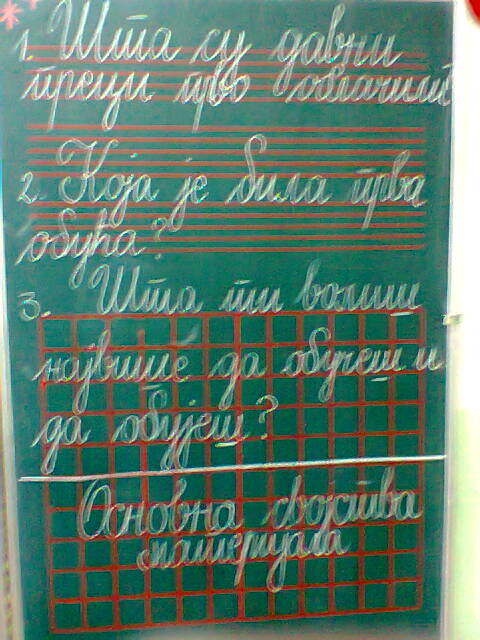 1. Шта су давни
преци прво облачили
2. Која је била прва
обућа?
3. Шта ти волиш
највише да обучеш и
да обујеш?
Основна својства
материјала